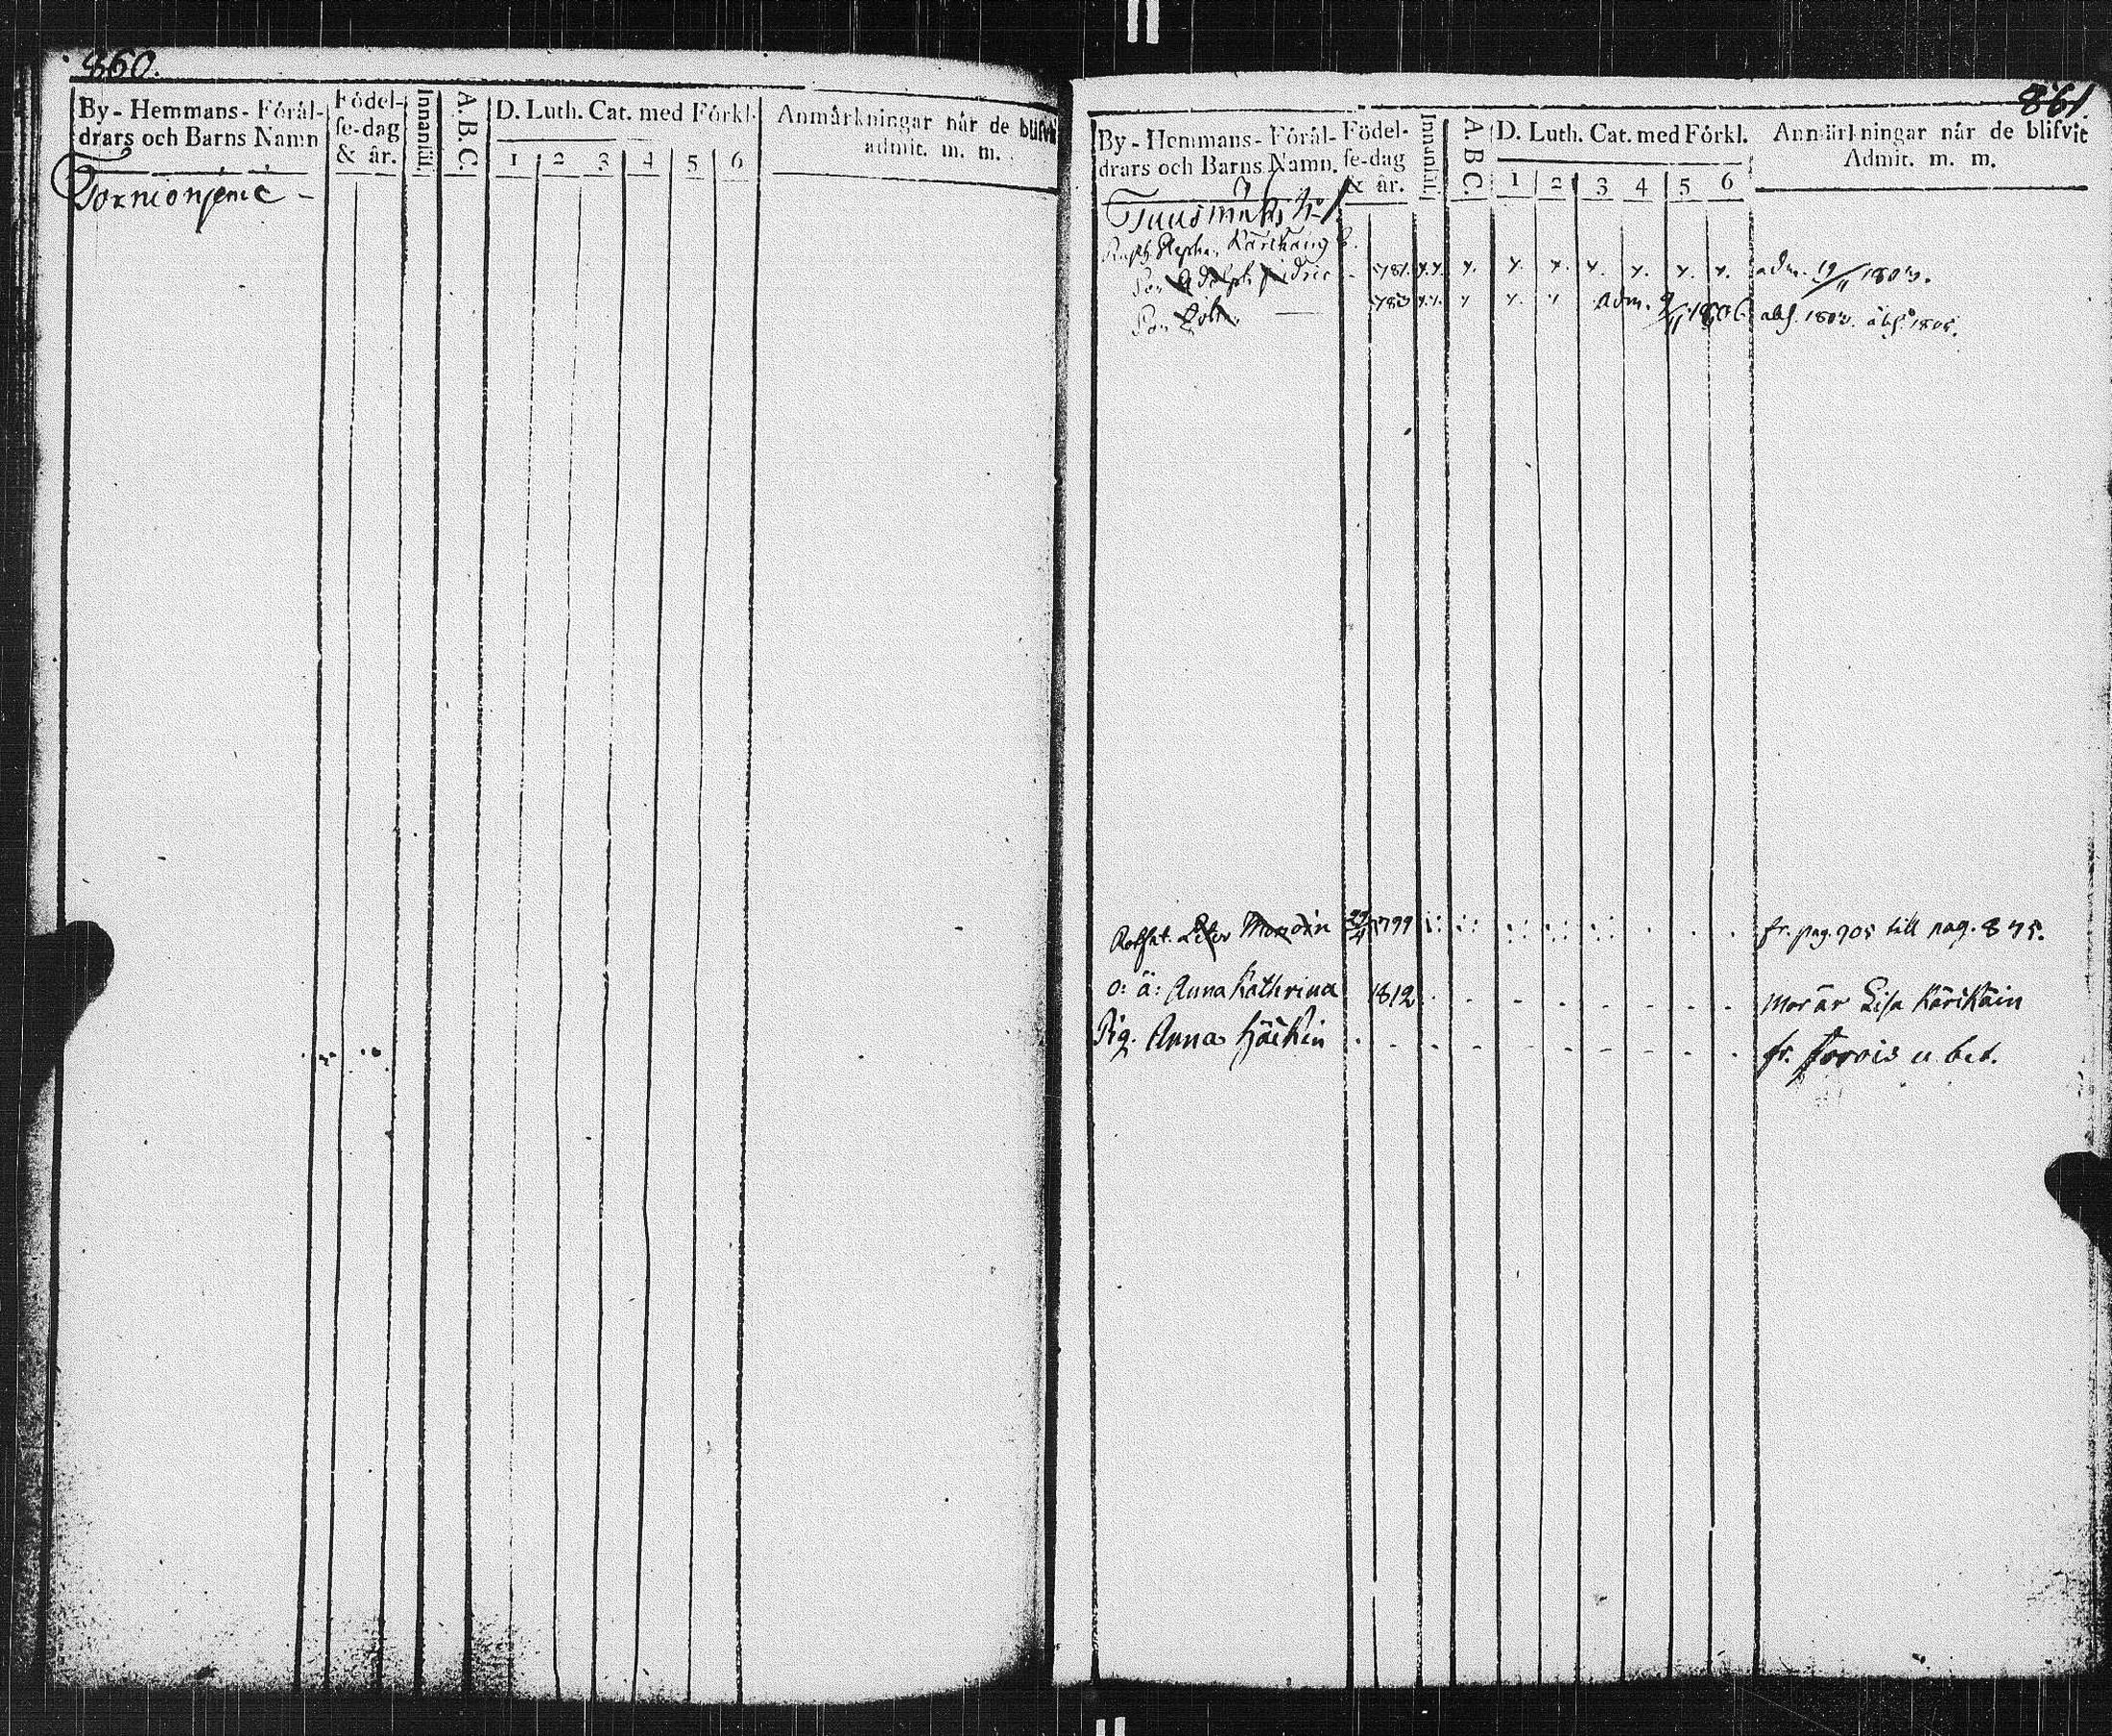 860.
By-Hemmans-Föräl-
drars och Barns Namn
Födel-
se-dag
& år.
Innantill.
A. B. C.
D. Luth. Cat. med Förkl.
1 2 3 4 5 6
Anmärkningar når de blifvit
admit. m. m.
Tornionjemi -
861.
By-Hemmans-Föräl-
drars och Barns Namn.
Födel-
se-dag
& år.
Innantill.
A. B. C.
D. Luth. Cat. med Förkl.
1 2 3 4 5 6
Anmärkningar når de blifvit
Admit. m. m.
Stepha. Kärikäng
Son Adolph Fridric - 781. adm. 19/11 1803.
Son 783 adm. 9/11 1806. abs. 1803. abs. 1805.
Peter 1799 fr. pag. 905 till pag. 875.
o: ä: Anna Kathrina 1812 Mor är Lisa Kärikäin
Pig. Anna Häikin fr. u. bet.